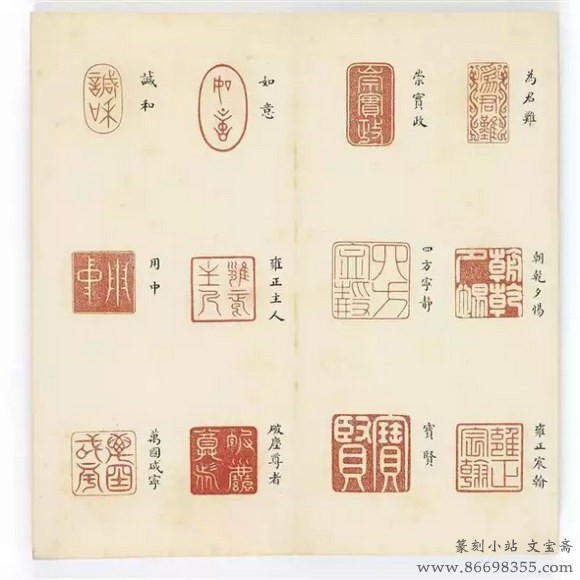 為君難
崇實政
如意
誠和
朝乾夕惕
四方寧静
雍正主人
用中
雍正宸翰
寶賢
破塵尊者
萬國咸寧
篆刻小站 文宝斋
www.86698355.com